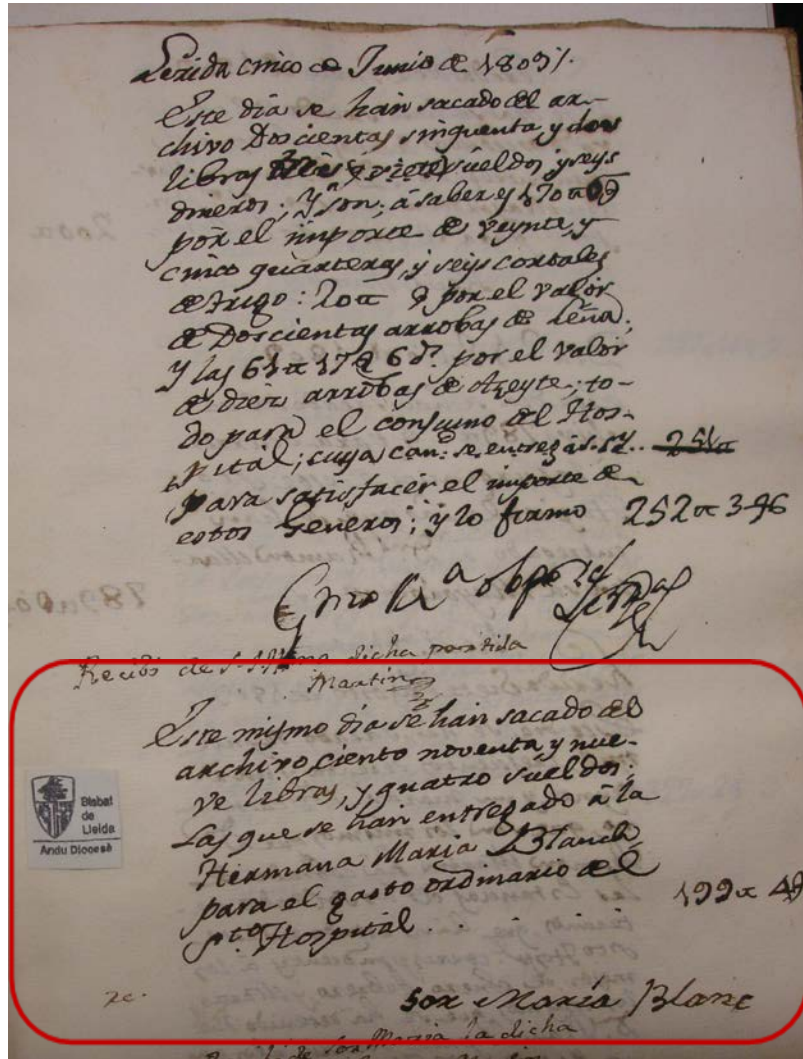 Lerida cinco de Junio de 1803%.
Este dia se han sacado del ar-
chivo Doscientas sinquenta y dos
libras tres sueldos, y seys
dineros; y son; á saber
por el importe de veynte, y
cinco quarteras, y seys cortales
de trigo: 20 por el valor
de Doscientas arrobas de leña;
y las 61 17 6 d.s por el valor
de diez arrobas de Azeyte; to-
do para el consumo del Hos-
pital; cuya can.d se entregá s. Sy.. 251
para satisfacer el importe de
estos Generos; y lo firmo 252 3 6
Recibí de S. S. Illma dicha partida
Martinez
Este mismo dia se han sacado del
archivo ciento noventa y nue-
ve libras, y quatro sueldos;
Las que se han entregado á la
Hermana Maria Blanch
para el gasto ordinario del
pto. Hospital . . . . . 199 4
Bisbat
de
Lleida
Arxiu Diocesà
Sor María Blanc
de Sor Maria la dicha